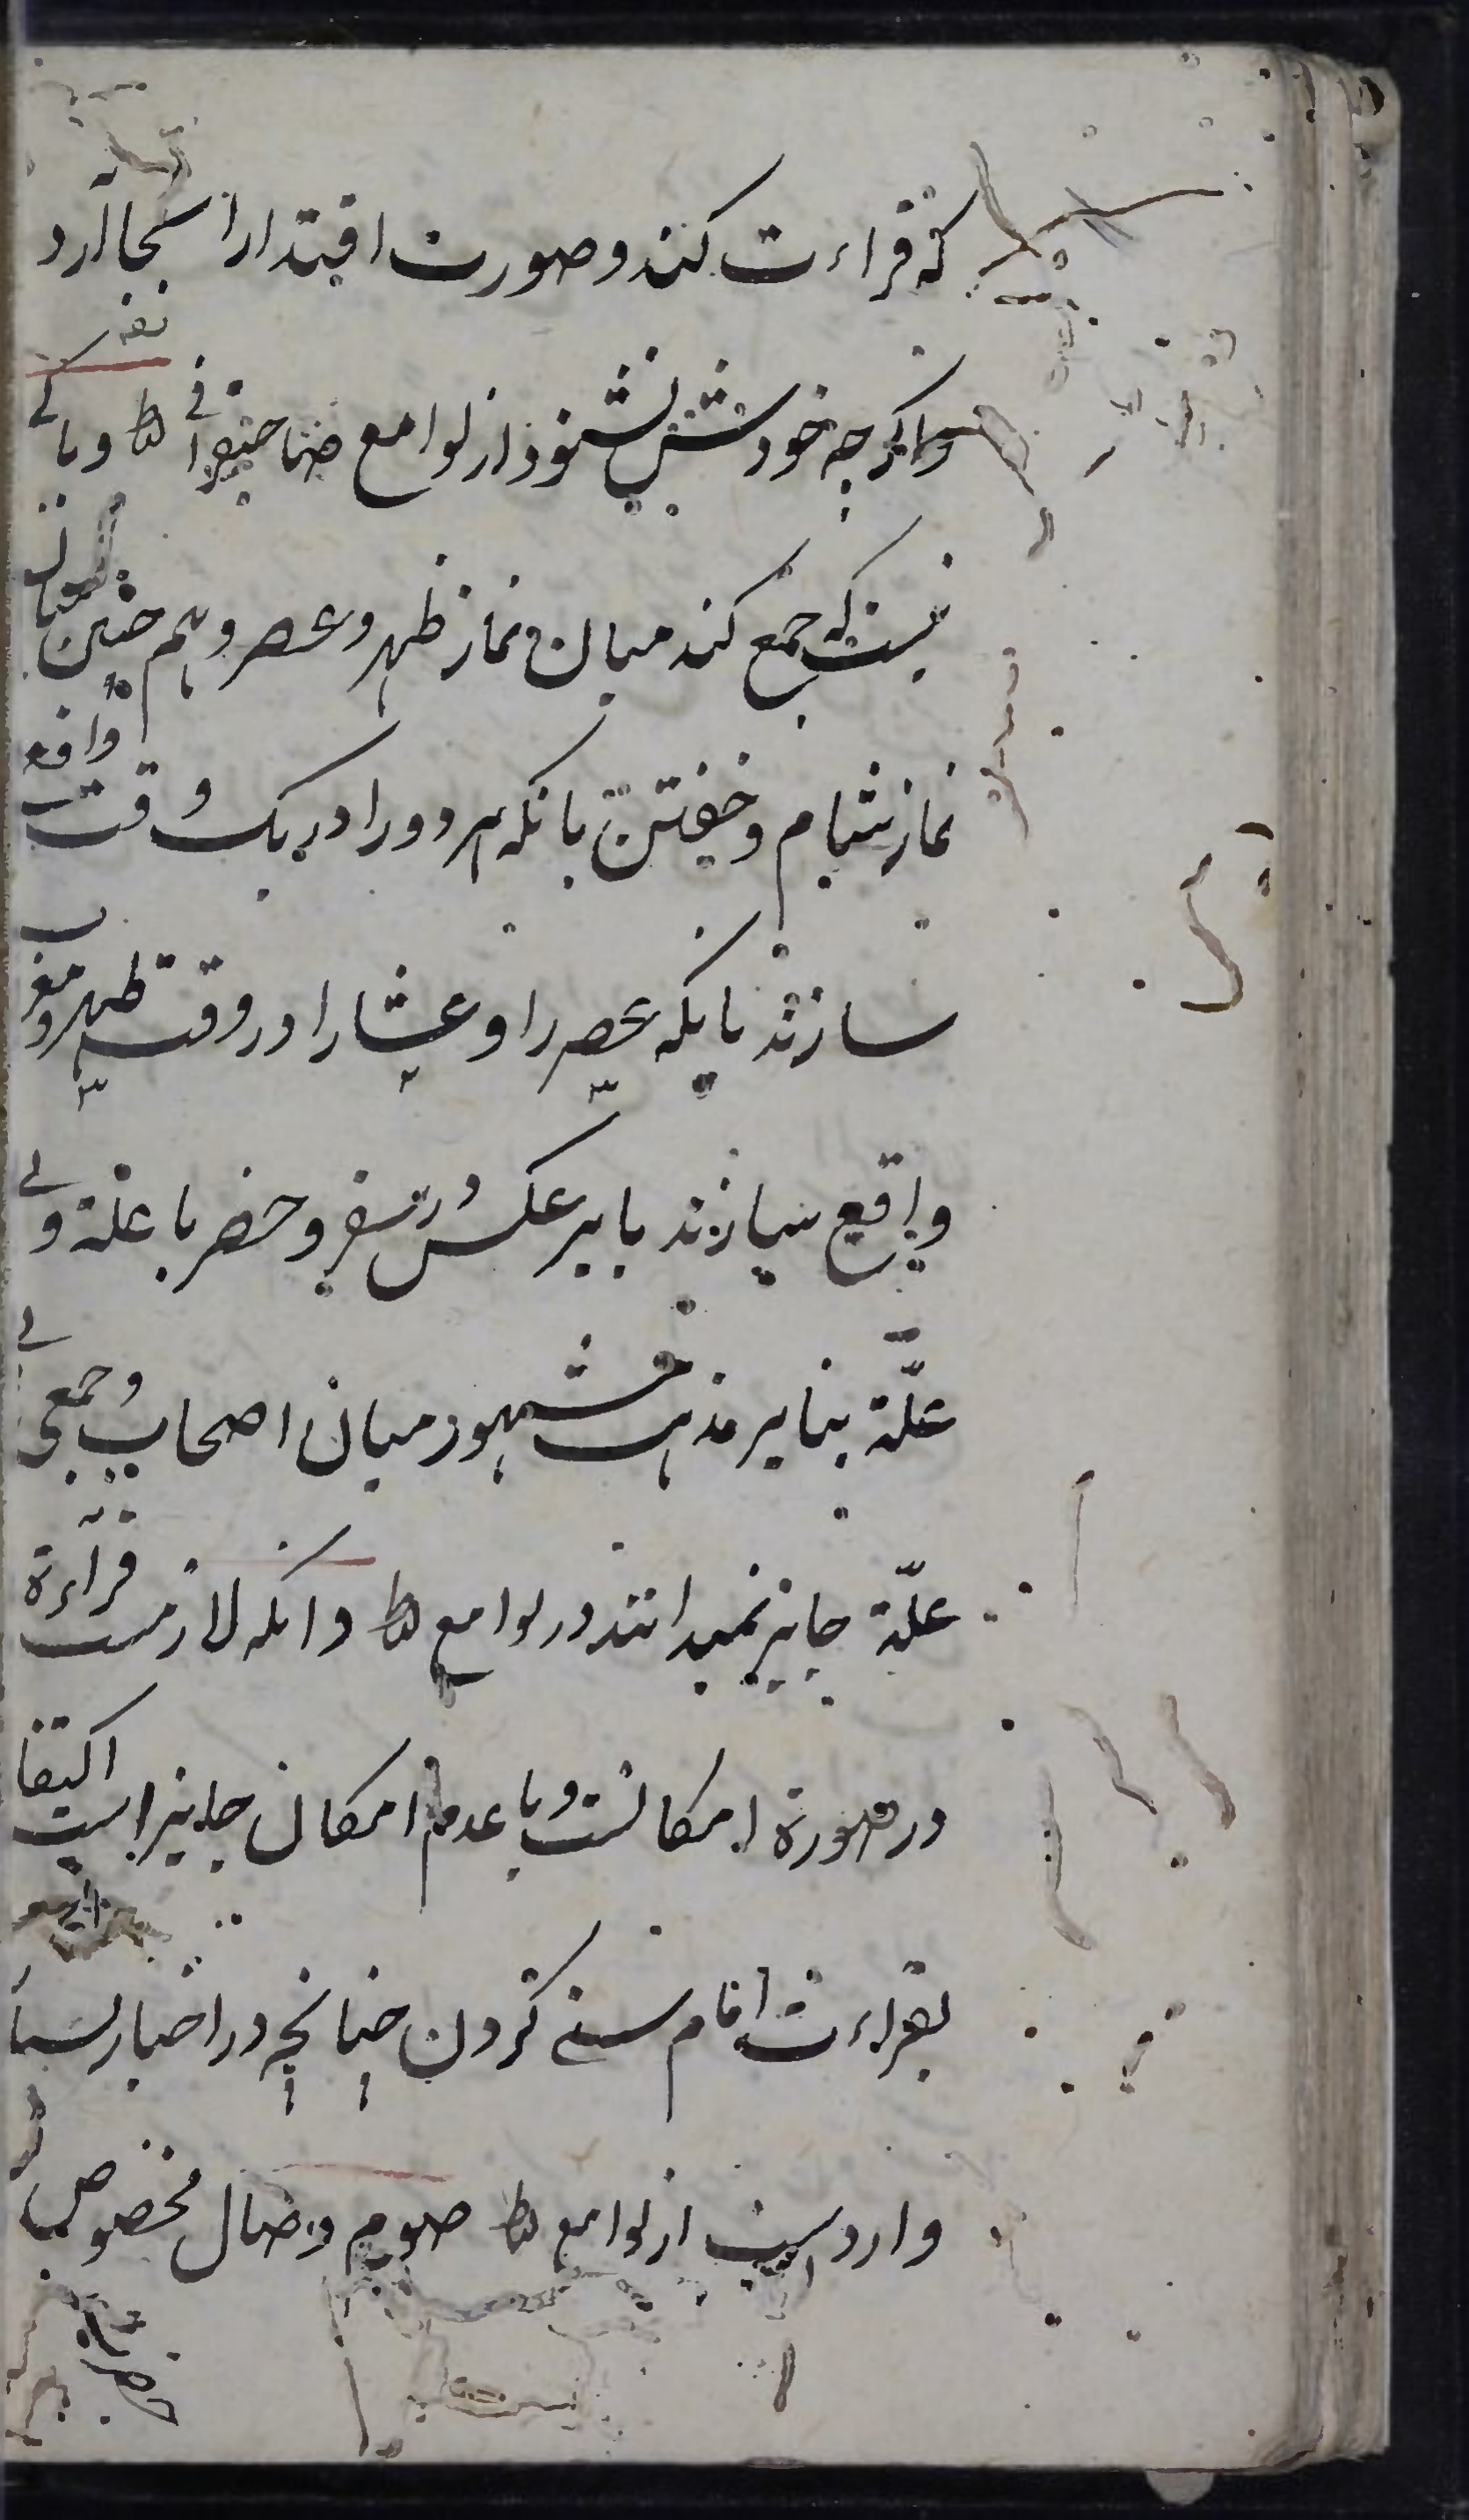 که قراءت کند و صورت اقتدا را بجا آرد
و اگر چه خودش نشنود از لوامع صاحبقرانی ط و باکی
نیست که جمع کند میان نماز ظهر و عصر و هم چنین میان
نماز شام و خفتن بانکه هر دو را در یک وقت واقع
سازند بانکه عصر را و عشا را در وقت ظهر و مغرب
واقع سازند یا بر عکس در سفر و حضر با علة و بی
علّة بنا بر مذهب مشهور میان اصحاب و جمعی بی
علّة جایز نمیدانند در لوامع ط وانکه لازمست قراءة
در صورة امکانست و با عدم امکان جایز است اکتفا
بقراءت امام سنی کردن چنانچه در اخبار بسیار
وارد است از لوامع ط صوم وصال مخصوص